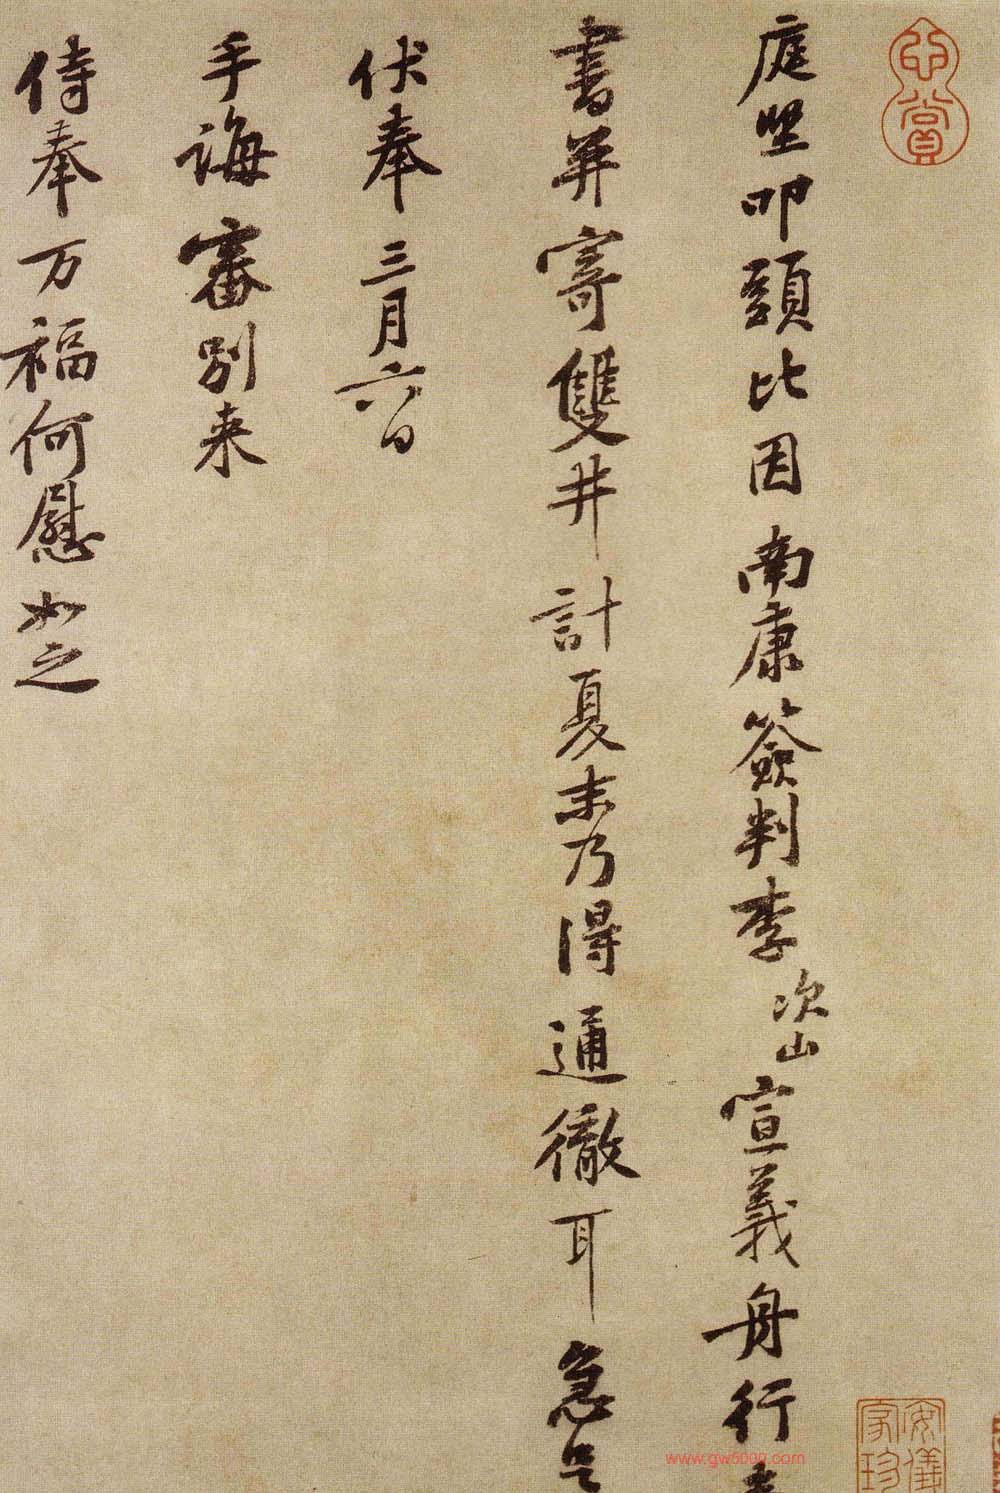 庭堅叩頭比因南康簽判李次山宣義舟行
書并寄雙井計夏末乃得通徹耳急足
伏奉三月六日
手誨審別来
侍奉万福何慰如之
心賞
安儀
家珍
www.gw5000.com